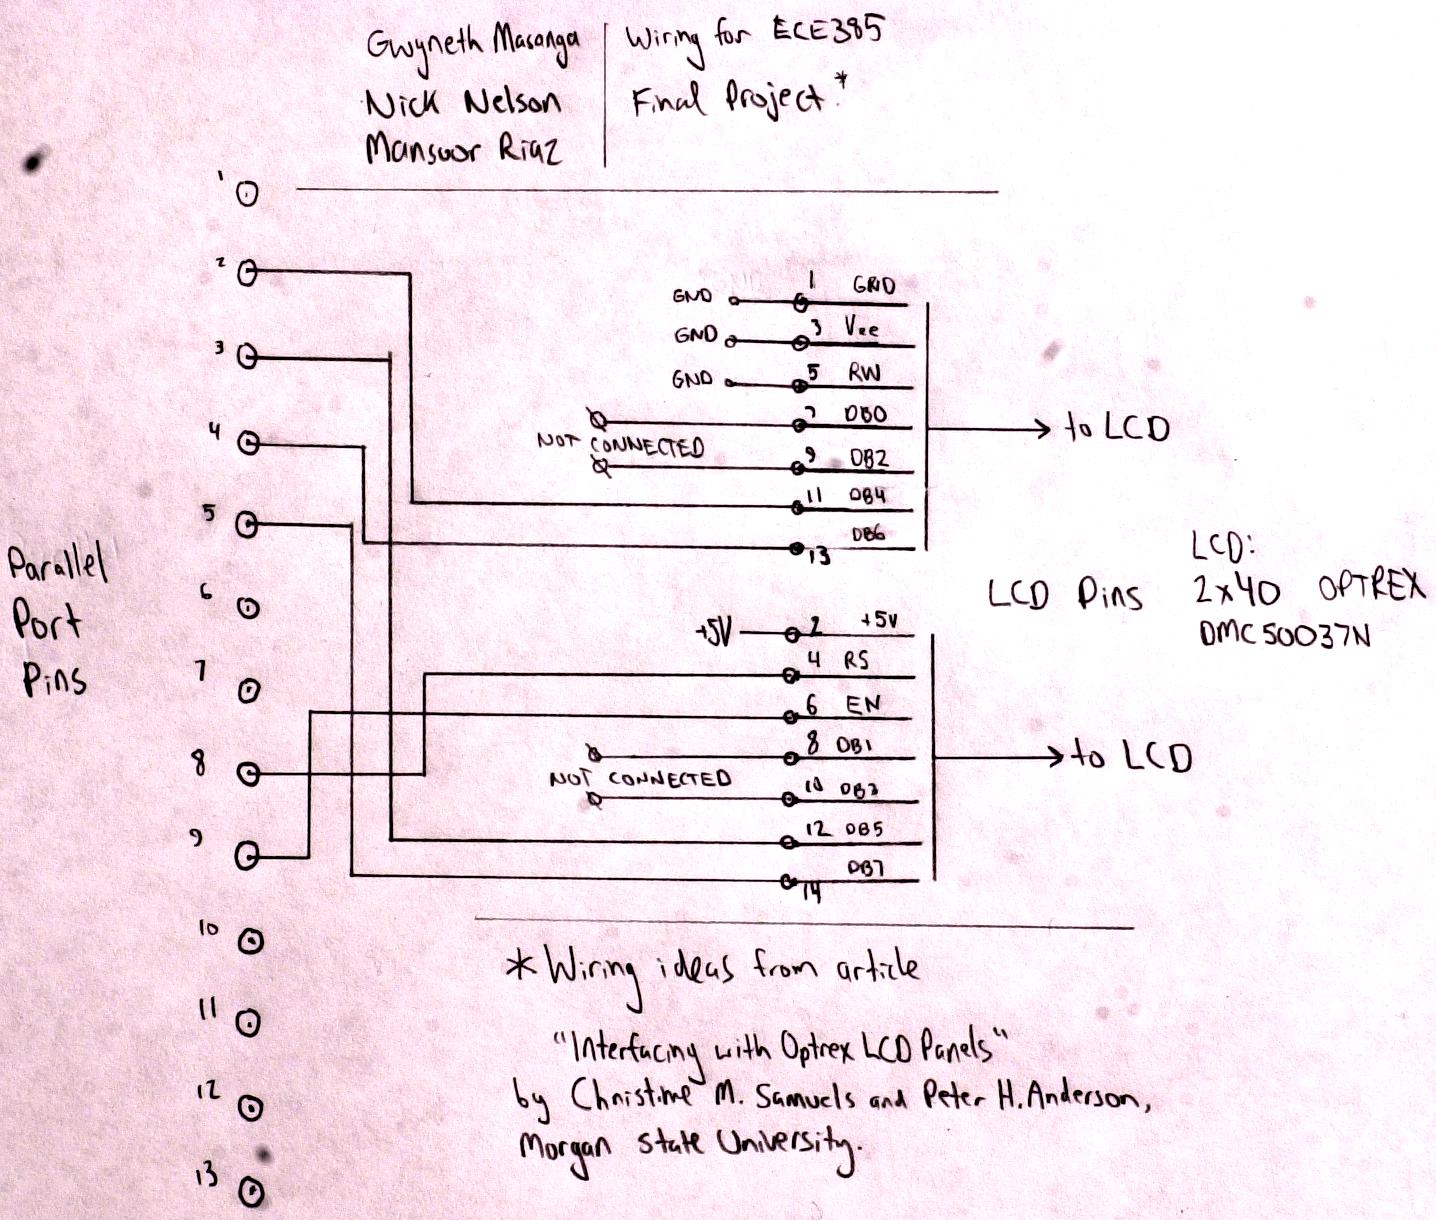 Gwyneth Masanga
Nick Nelson
Mansoor Riaz
Wiring for ECE385
Final Project.*
1
2
3
4
5
6
7
8
9
10
11
12
13
Parallel
Port
Pins
GND 1 GND
GND 3 Vee
GND 5 RW
7 DB0
NOT CONNECTED
9 DB2
11 DB4
13 DB6
to LCD
LCD Pins
LCD:
2x40 OPTREX
DMC50037N
+5V 2 +5V
4 RS
6 EN
8 DB1
NOT CONNECTED
10 DB3
12 DB5
14 DB7
to LCD
* Wiring ideas from article
"Interfacing with Optrex LCD Panels"
by Christine M. Samuels and Peter H. Anderson,
Morgan State University.